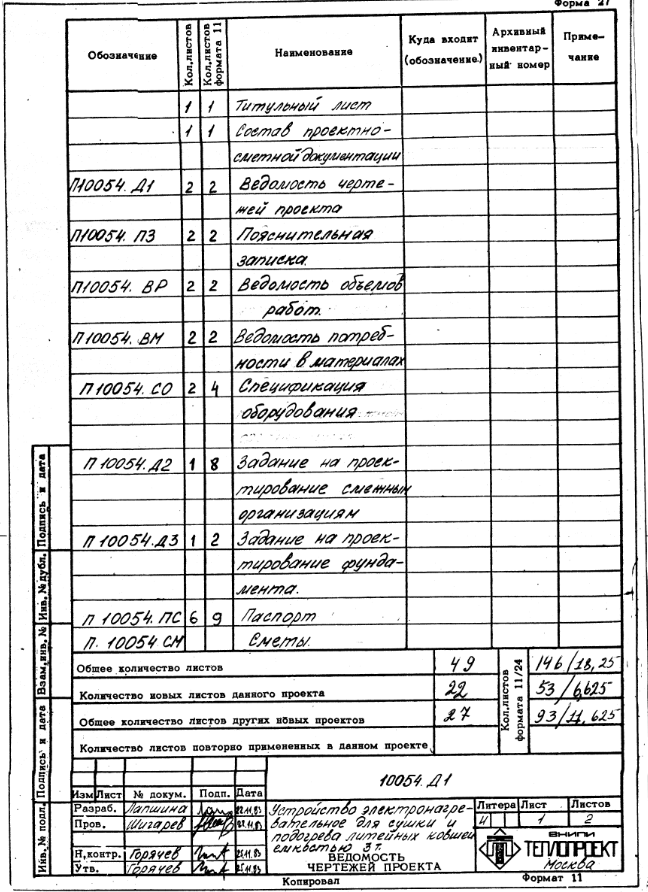 Форма 27
Обозначение Кол.листов Кол.листов формата 11 Наименование Куда входит (обозначение) Архивный инвентар-ный номер Приме-чание
1 1 Титульный лист
1 1 Состав проектно-
сметной документации
П10054. Д1 2 2 Ведомость черте-
жей проекта
П10054. ПЗ 2 2 Пояснительная
записка.
П10054. ВР 2 2 Ведомость объемов
работ.
П10054. ВМ 2 2 Ведомость потреб-
ности в материалах
П10054. СО 2 4 Спецификация
оборудования
П10054. Д2 1 8 Задание на проек-
тирование смежным
организациям
П10054. Д3 1 2 Задание на проек-
тирование фунда-
мента.
П 10054. ПС 6 9 Паспорт
П. 10054 СМ Сметы.
Общее количество листов 49 Кол.листов формата 11/24 146/18,25
Количество новых листов данного проекта 22 53/6,625
Общее количество листов других новых проектов 27 93/11,625
Количество листов повторно примененных в данном проекте
10054. Д1
Изм Лист № докум. Подп. Дата
Разраб. Лапшина
Пров. Шигарев
Н.контр. Горячев
Утв. Горячев
Устройство электронагре-
вательное для сушки и
подогрева литейных ковшей
емкостью 3 т.
ВЕДОМОСТЬ
ЧЕРТЕЖЕЙ ПРОЕКТА
Литера Лист Листов
И 1 2
ВНИПИ
ТЕПЛОПРОЕКТ
Москва
Копировал Формат 11
Инв. № подл. Подпись и дата Взам.инв. № Инв. № дубл. Подпись и дата